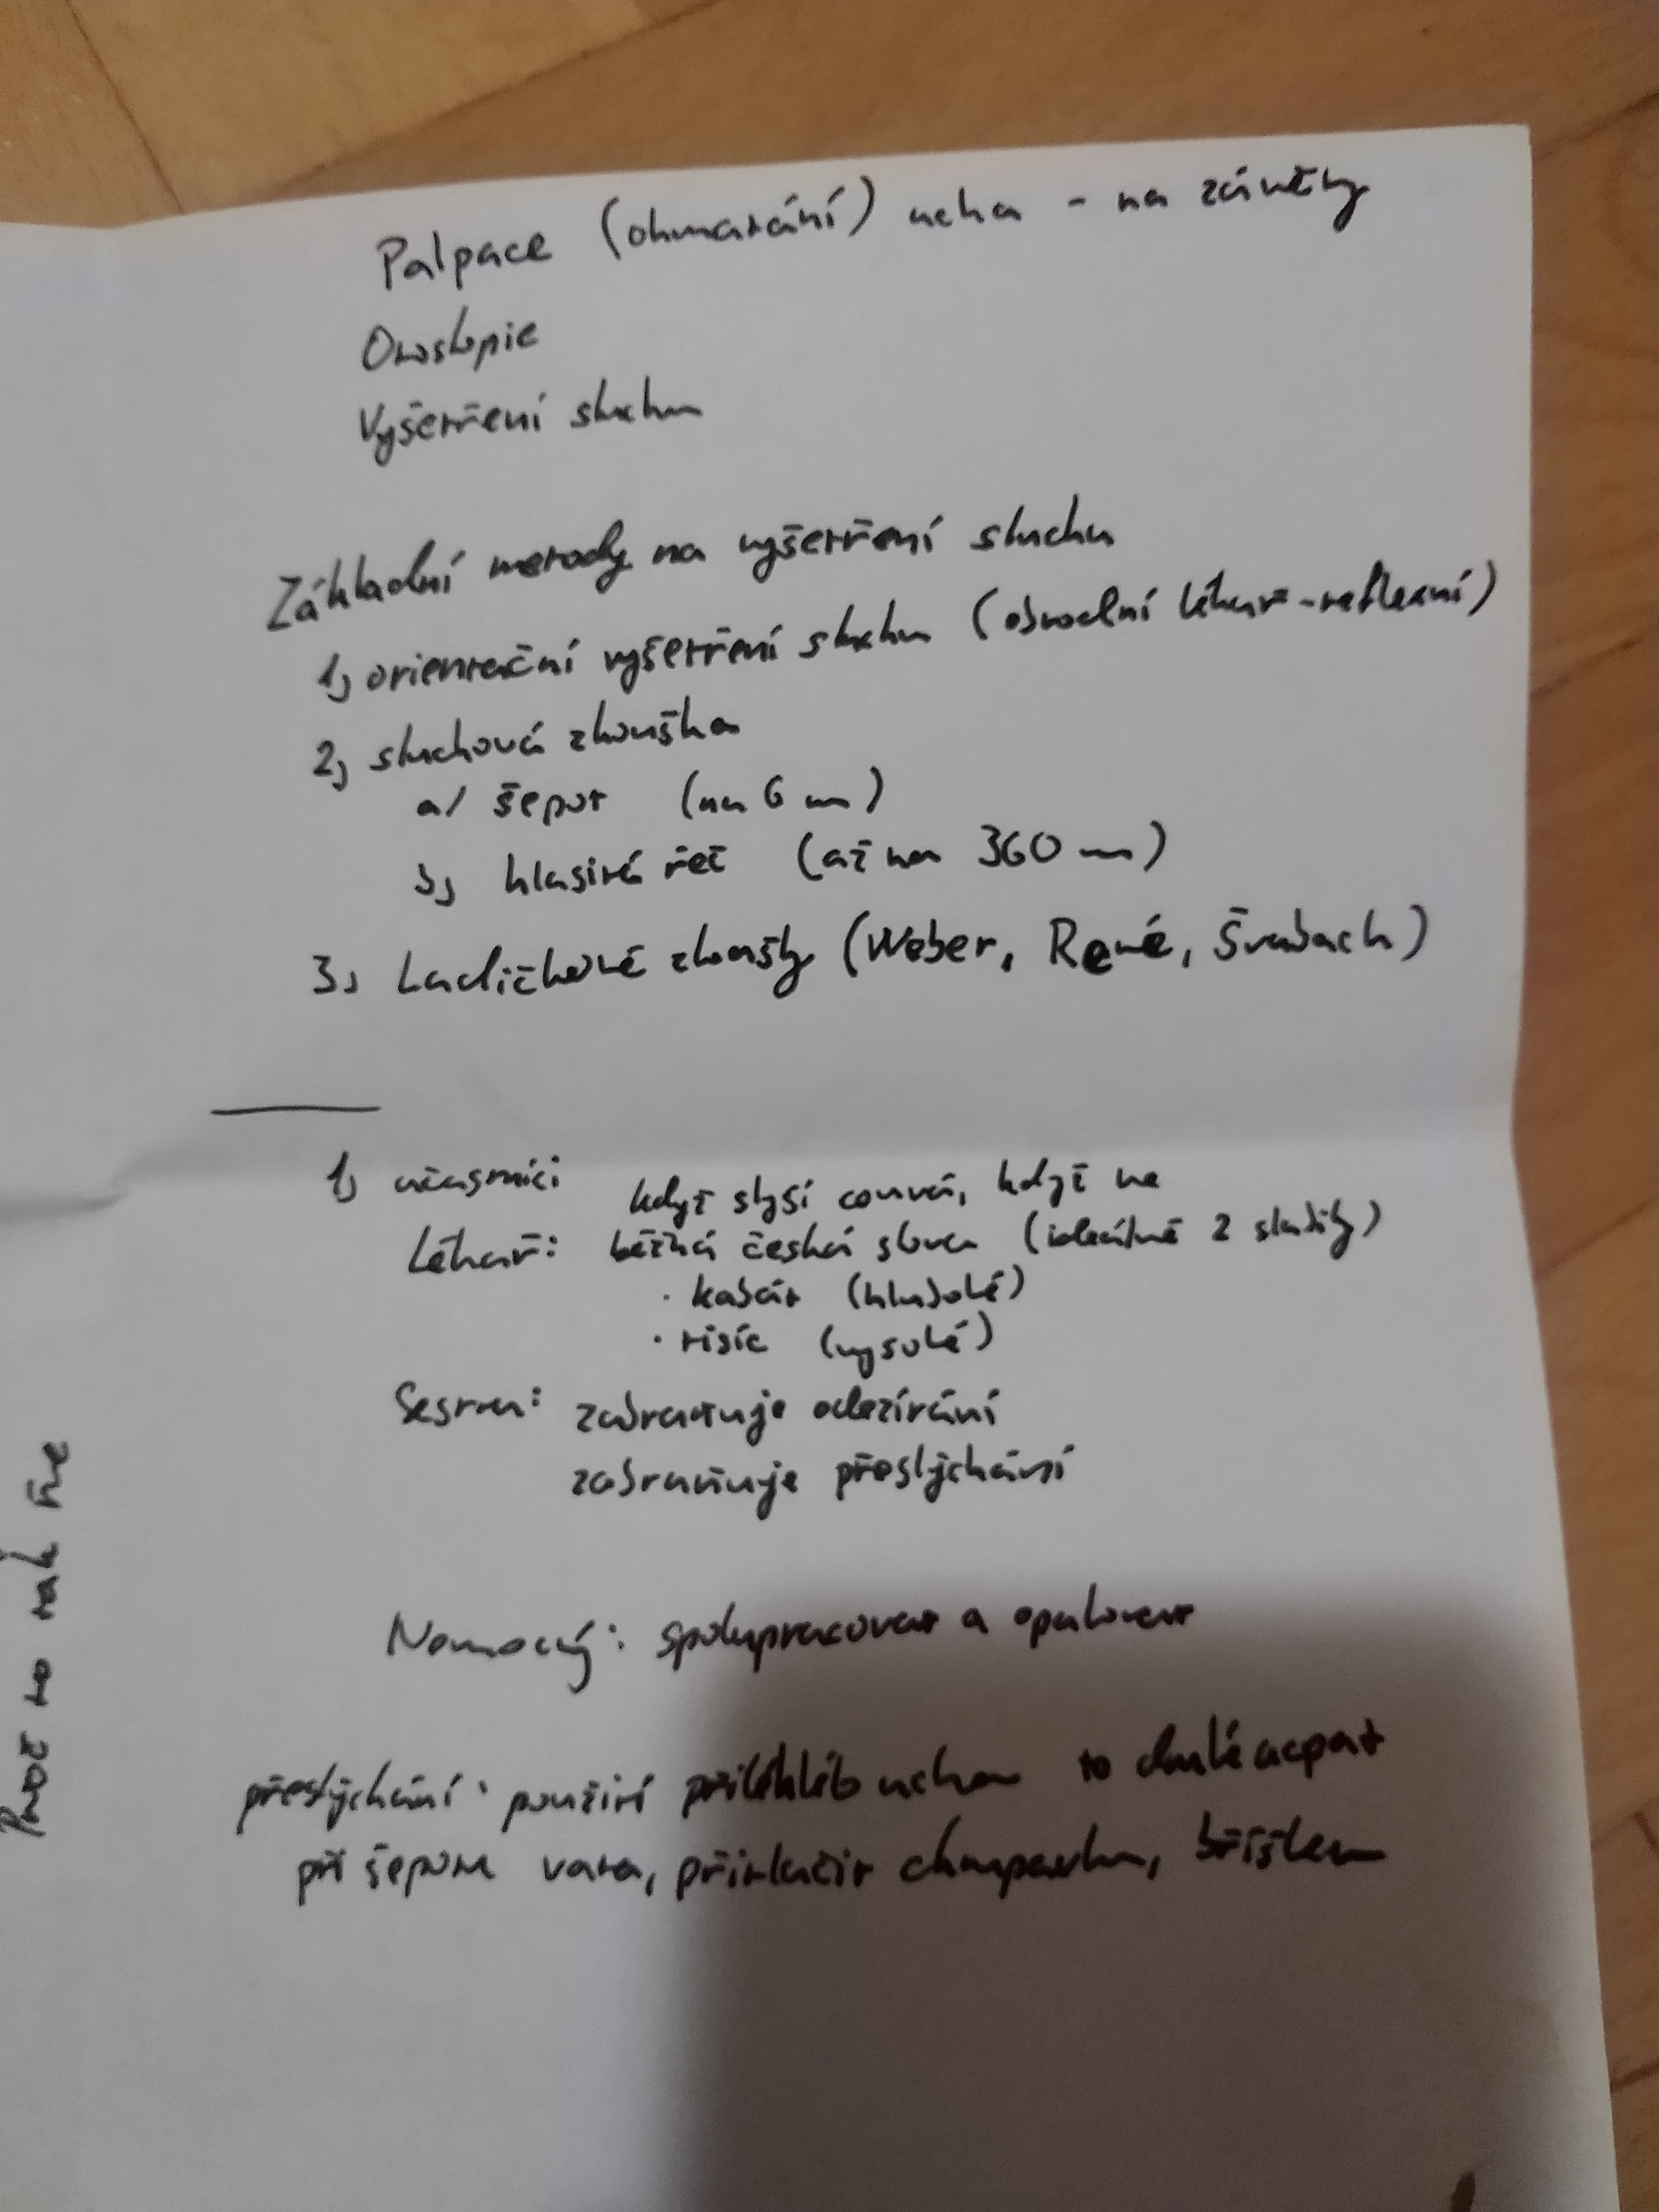 Palpace (ohmatání) ucha - na záněty
Otoskopie
Vyšetření sluchu
Základní metody na vyšetření sluchu
1, orientační vyšetření sluchu (obvodní lékař - reflexní)
2, sluchová zkouška
a/ šepot (na 6 m)
b, hlasitá řeč (až na 360 m)
3, Ladičkové zkoušky (Weber, René, Švabach)
1, účastníci když slyší couvá, když ne
Lékař: běžná česká slova (ideálně 2 slabiky)
· kabát (hluboké)
· tisíc (vysoké)
Sestra: zabraňuje odezírání
zabraňuje přeslýchání
Nemocný: spolupracovat a opakovat
přeslýchání: použití přilehlého ucha to druhé ucpat
při šepotu vata, přitlačit chrupavku, bříškem
Proč to tak